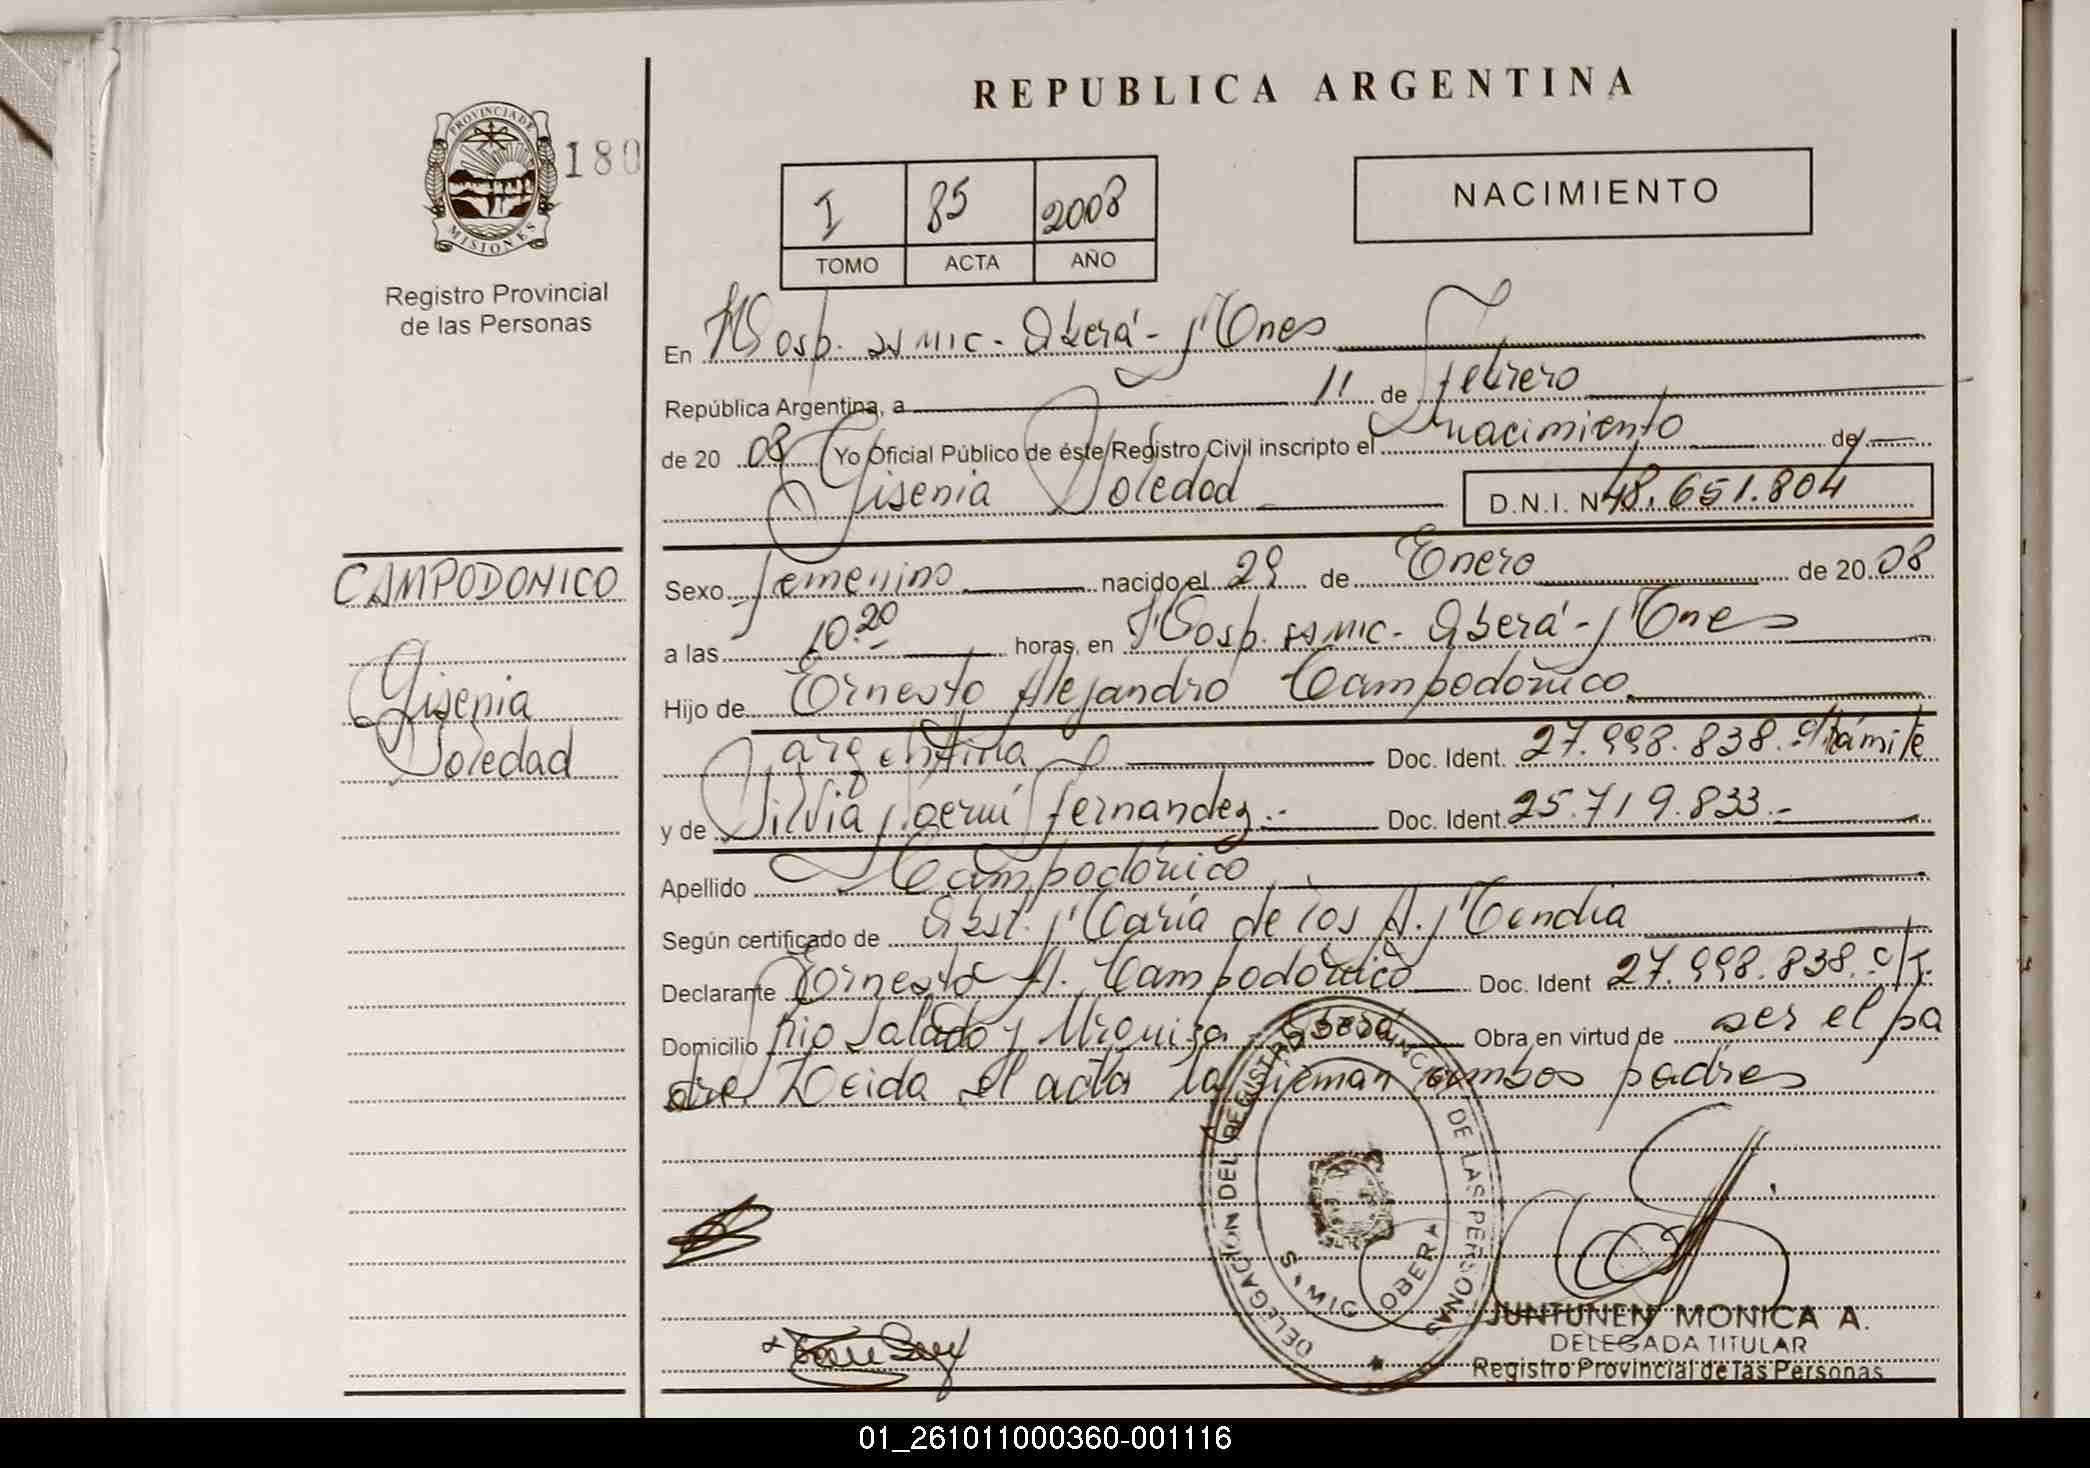 REPUBLICA ARGENTINA
PROVINCIA DE
MISIONES
180
Registro Provincial
de las Personas
I 85 2008
TOMO ACTA AÑO
NACIMIENTO
En Hosp. SAMIC - Oberá - M'Ones
República Argentina, a 11 de Febrero
de 20 08 Yo Oficial Público de éste Registro Civil inscripto el nacimiento de
Gisenia Soledad D.N.I. Nº 48.651.804
CAMPODONICO
Gisenia
Soledad
Sexo femenino nacido el 29 de Enero de 20 08
a las 10.20 horas, en Hosp. SAMIC - Oberá - M'Ones
Hijo de Ernesto Alejandro Campodónico
argentina Doc. Ident. 27.998.838. c/trámite
y de Silvia Noemí Fernandez.- Doc. Ident. 25.719.833.-
Apellido Campodónico
Según certificado de Obst. María de los A. Mendia
Declarante Ernesto A. Campodónico Doc. Ident 27.998.838. c/T.
Domicilio Rio Salado y Urquiza - Oberá Obra en virtud de ser el pa
dre. Leida el acta la firman ambos padres
DELEGACIÓN DEL REGISTRO PROVINCIAL DE LAS PERSONAS
SAMIC OBERA
JUNTUNEN MONICA A.
DELEGADA TITULAR
Registro Provincial de las Personas
01_261011000360-001116